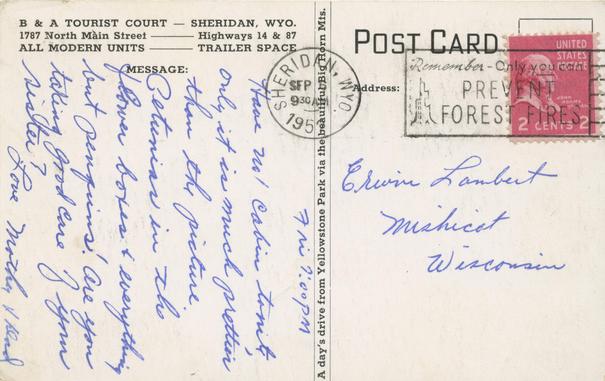 B & A TOURIST COURT — SHERIDAN, WYO.
1787 North Main Street —— Highways 14 & 87
ALL MODERN UNITS —— TRAILER SPACE
MESSAGE:
Fri 7:00 PM
Have no 1 cabin tonit,
only it is much prettier
than the picture
Petunias in the
flower boxes & everything
but penguins! Are you
taking good care of your
sister?
Love Mother & Dad
A day's drive from Yellowstone Park via the beautiful Big Horn Mts.
POST CARD
Address:
SHERIDAN, WYO.
SEP
930 AM
195
Remember - Only you can
PREVENT
FOREST FIRES
UNITED
STATES
JOHN ADAMS
2 CENTS 2
Erwin Lambert
Mishicot
Wisconsin